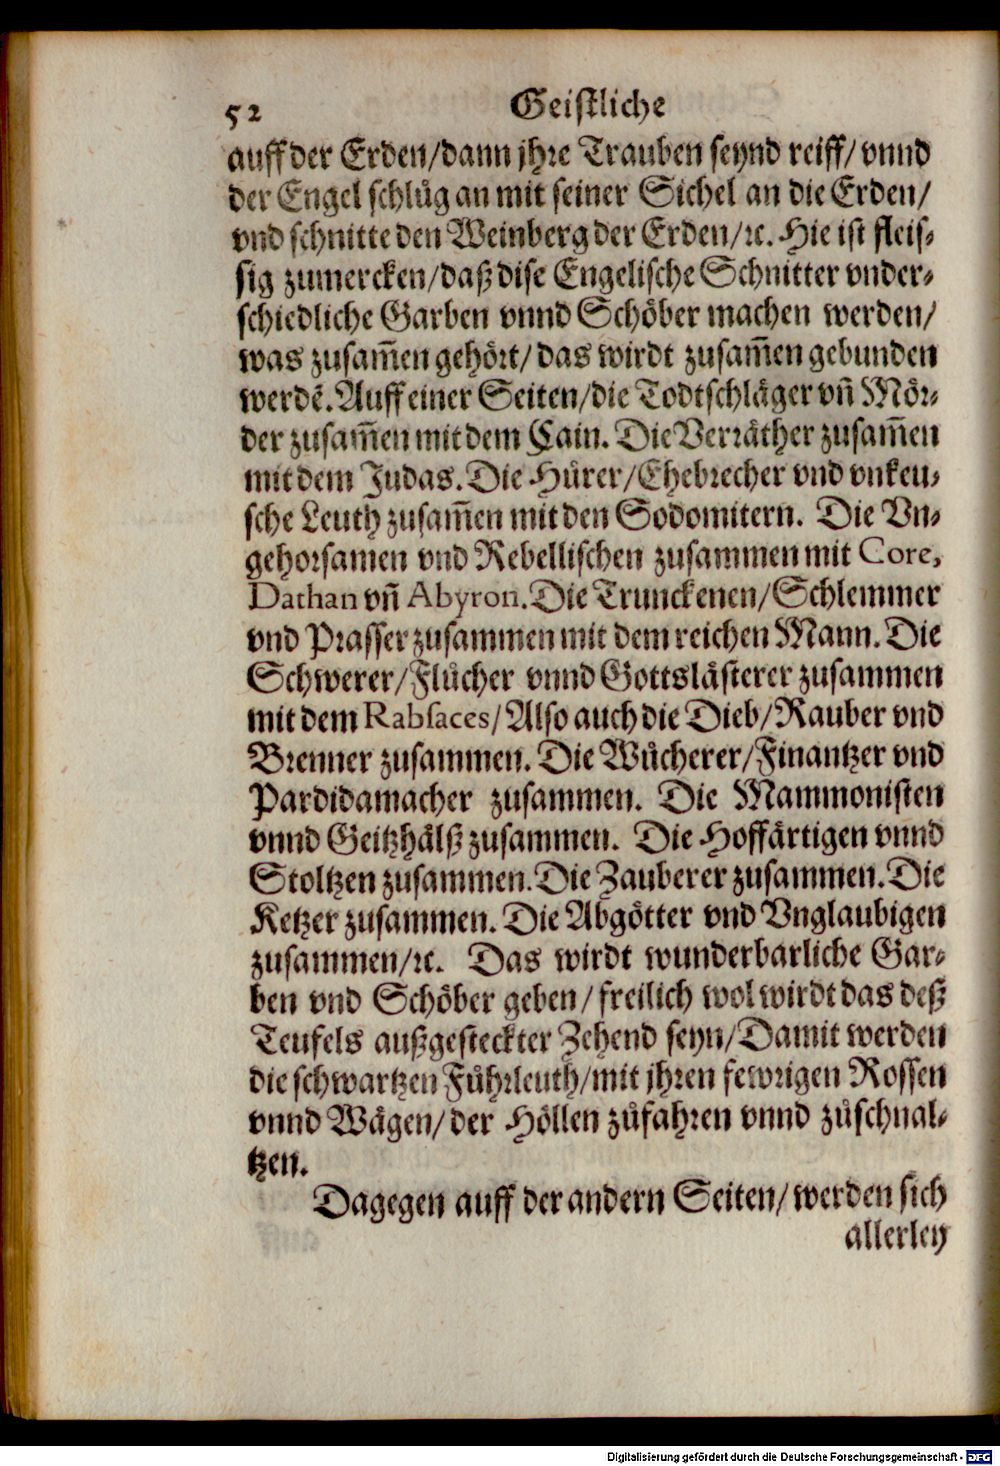 52 Geistliche
auff der Erden/dann jhre Trauben seynd reiff/ vnnd
der Engel schlůg an mit seiner Sichel an die Erden/
vnd schnitte den Weinberg der Erden/ꝛc. Hie ist fleis-
sig zumercken/daß dise Engelische Schnitter vnder-
schiedliche Garben vnnd Schöber machen werden/
was zusam̃en gehört/ das wirdt zusam̃en gebunden
werdē. Auff einer Seiten/die Todtschläger vñ Mör-
der zusam̃en mit dem Cain. Die Verräther zusam̃en
mit dem Judas. Die Hůrer/Ehebrecher vnd vnkeu-
sche Leuth zusam̃en mit den Sodomitern. Die Vn-
gehorsamen vnd Rebellischen zusammen mit Core,
Dathan vñ Abyron. Die Trunckenen/Schlemmer
vnd Prasser zusammen mit dem reichen Mann. Die
Schwerer/Flůcher vnnd Gottslästerer zusammen
mit dem Rabsaces/Also auch die Dieb/Rauber vnd
Brenner zusammen. Die Wůcherer/Finantzer vnd
Pardidamacher zusammen. Die Mammonisten
vnnd Geitzhälß zusammen. Die Hoffärtigen vnnd
Stoltzen zusammen. Die Zauberer zusammen. Die
Ketzer zusammen. Die Abgötter vnd Vnglaubigen
zusammen/ꝛc. Das wirdt wunderbarliche Gar-
ben vnd Schöber geben/ freilich wol wirdt das deß
Teufels außgesteckter Zehend seyn/Damit werden
die schwartzen Fůhrleuth/mit jhren fewrigen Rossen
vnnd Wägen/ der Höllen zůfahren vnnd zůschnal-
tzen.
Dagegen auff der andern Seiten/ werden sich
allerley
Digitalisierung gefördert durch die Deutsche Forschungsgemeinschaft - DFG